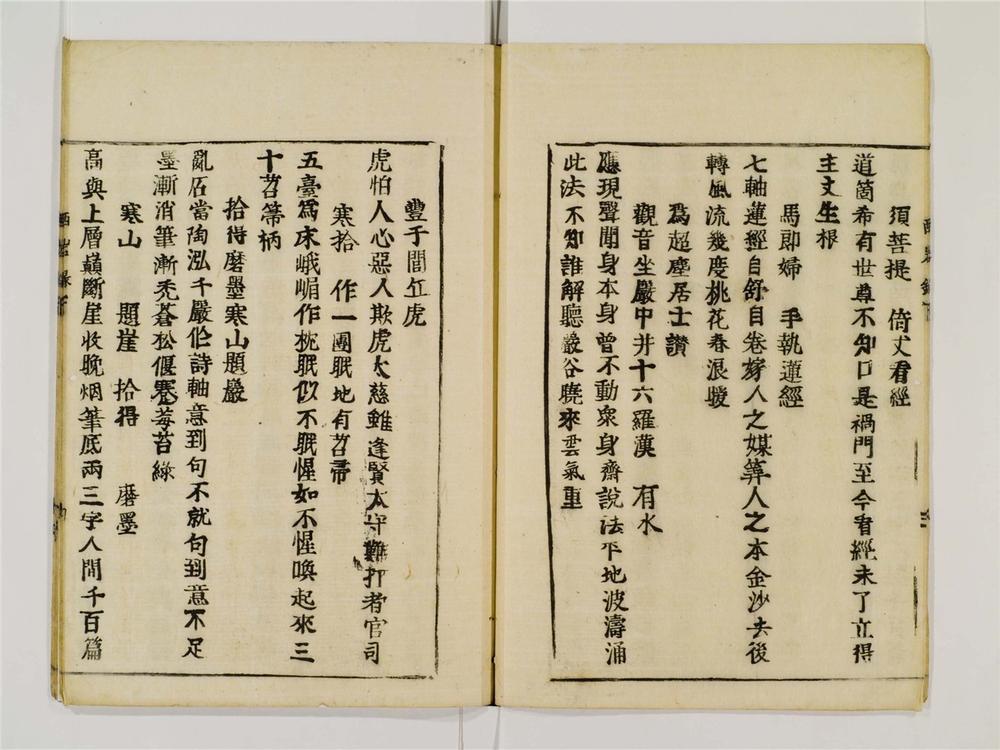 須菩提　倚丈看經
道箇希有世尊不知口是禍門至今看經未了立得
主丈生根
馬郎婦　手執蓮經
七軸蓮經自舒自卷嫁人之媒筭人之本金沙去後
轉風流幾度桃花春浪暖
為超塵居士讃
觀音坐巖中并十六羅漢　有水
應現聲聞身本身曾不動衆身齊說法平地波濤涌
此法不知誰解聽巖谷曉來雲氣重
豐干閭丘虎
虎怕人心惡人欺虎大慈雖逢賢太守難打者官司
寒拾　作一團眠地有苕帚
五臺為床峨嵋作枕眠似不眠惺如不惺喚起來三
十苕箒柄
拾得磨墨寒山題巖
亂石當陶泓千巖作詩軸意到句不就句到意不足
墨漸消筆漸禿蒼松偃蹇莓苔綠
寒山　題崖　拾得　磨墨
高與上層巔斷崖收晚烟筆底兩三字人間千百篇